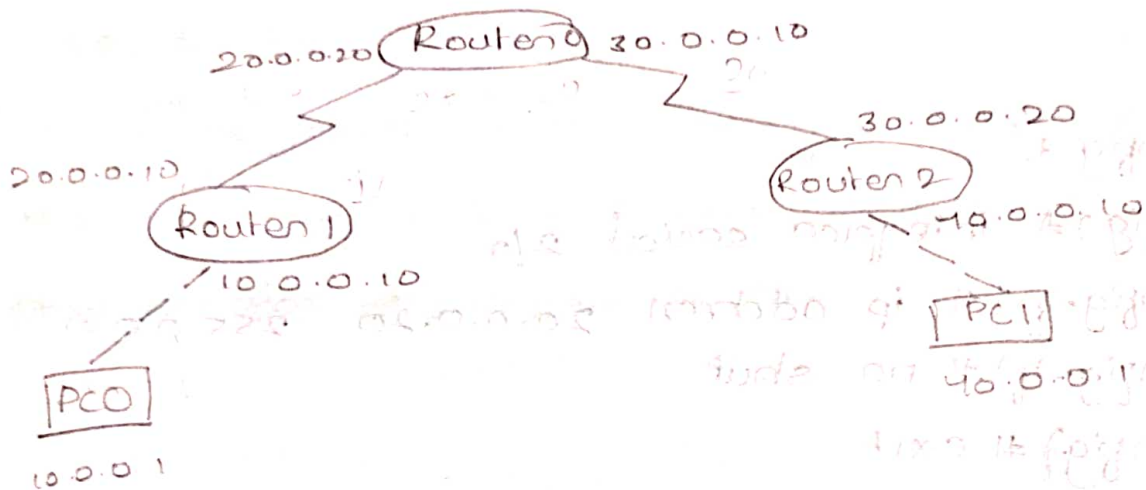 20.0.0.20 Router 0 30.0.0.10
30.0.0.20
20.0.0.10
Router 2
Router 1
40.0.0.10
10.0.0.10
PC1
PC0
40.0.0.1
10.0.0.1